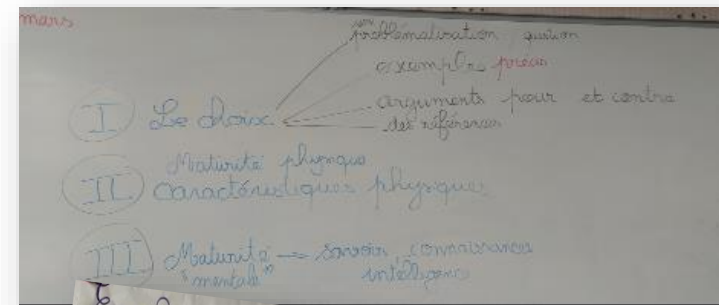 mars
problématisation, question
exemples précis
I Le choix
arguments pour et contre
des références
Maturité physique
II caractéristiques physiques
III Maturité "mentale" → savoir, connaissances
intelligence